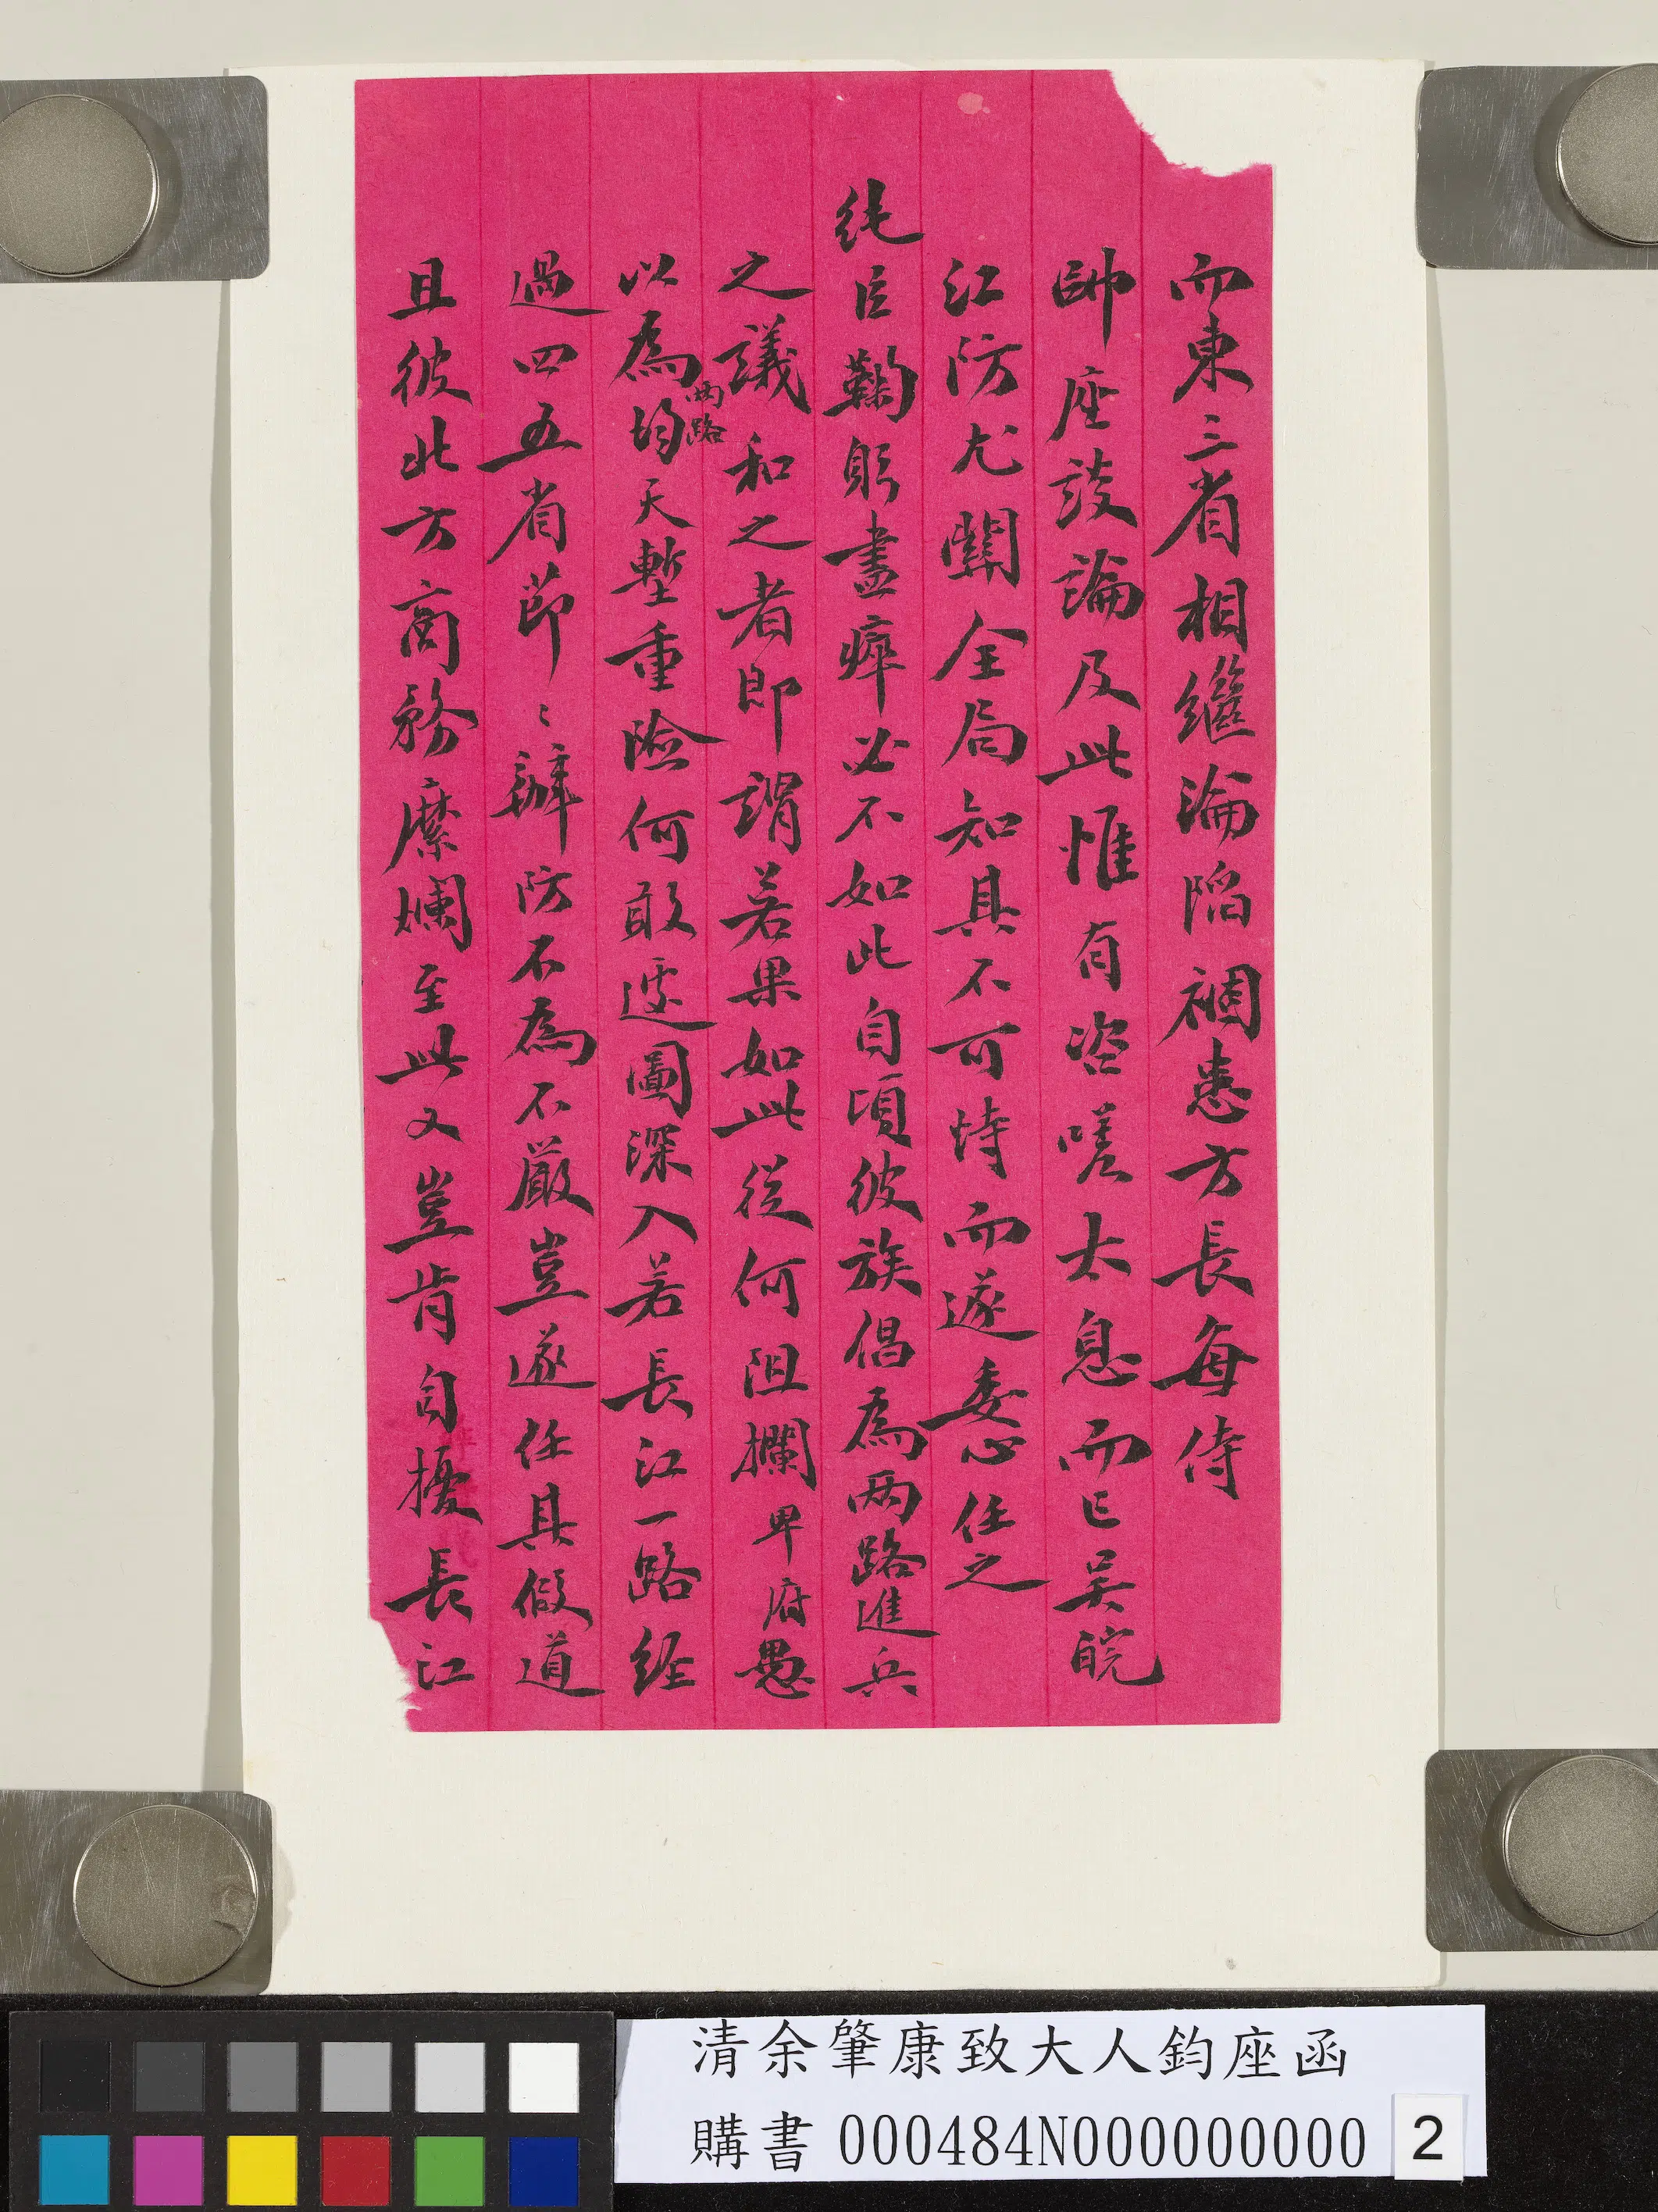 而東三省相繼淪陷禍患方長每侍
帥座談論及此惟有咨嗟太息而已吳皖
江防尤關全局知其不可恃而遂委心任之
純臣鞠躬盡瘁必不如此自頃彼族倡為两路進兵
之議和之者即謂若果如此從何阻攔卑府愚
以為两路均天塹重險何敢遽圖深入若長江一路經
過四五省節〻辦防不為不嚴豈遂任其假道
且彼此方商務糜爛至此又豈肯自擾長江
清余肇康致大人鈞座函
購書 000484N000000000
2